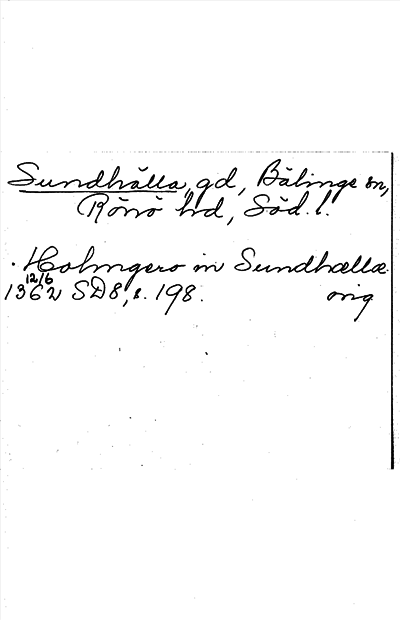 Sundhälla, gd, Bälinge sn,
Rönö hd, Söd. l.
. Holmgero in Sundhælla
12/6
1362 SD8, s. 198. orig